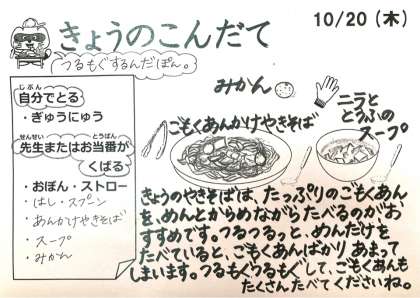 きょうのこんだて
10/20（木）
つるもぐするんだぽん。
自分でとる
じぶん
・ぎゅうにゅう
せんせい
とうばん
先生またはお当番が
くばる
・おぼん・ストロー
・はし・スプーン
・あんかけやきそば
・スープ
・みかん
みかん
ごもくあんかけやきそば
ニラと
とうふの
スープ
きょうのやきそばは、たっぷりのごもくあん
を、めんとからめながらたべるのがお
すすめです。つるつるっと、めんだけを
たべていると、ごもくあんばかり あまって
しまいます。つるもぐつるもぐして、ごもくあんも
たくさんたべてくださいね。